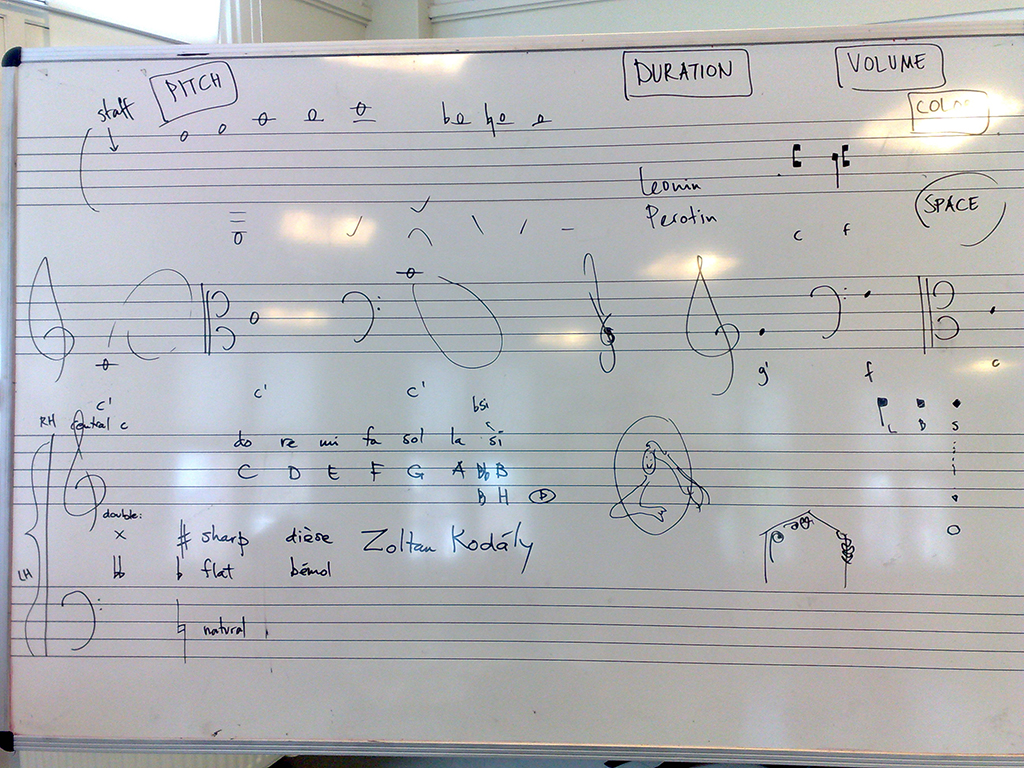 PITCH
DURATION
VOLUME
COLOR
staff
Leonin
Perotin
SPACE
c f
c' c' c'
g' f c
RH central c
bsi
do re mi fa sol la si
C D E F G A Bb B
B H D
L B S
double:
x # sharp dièse
bb b flat bémol
Zoltan Kodály
LH
♮ natural